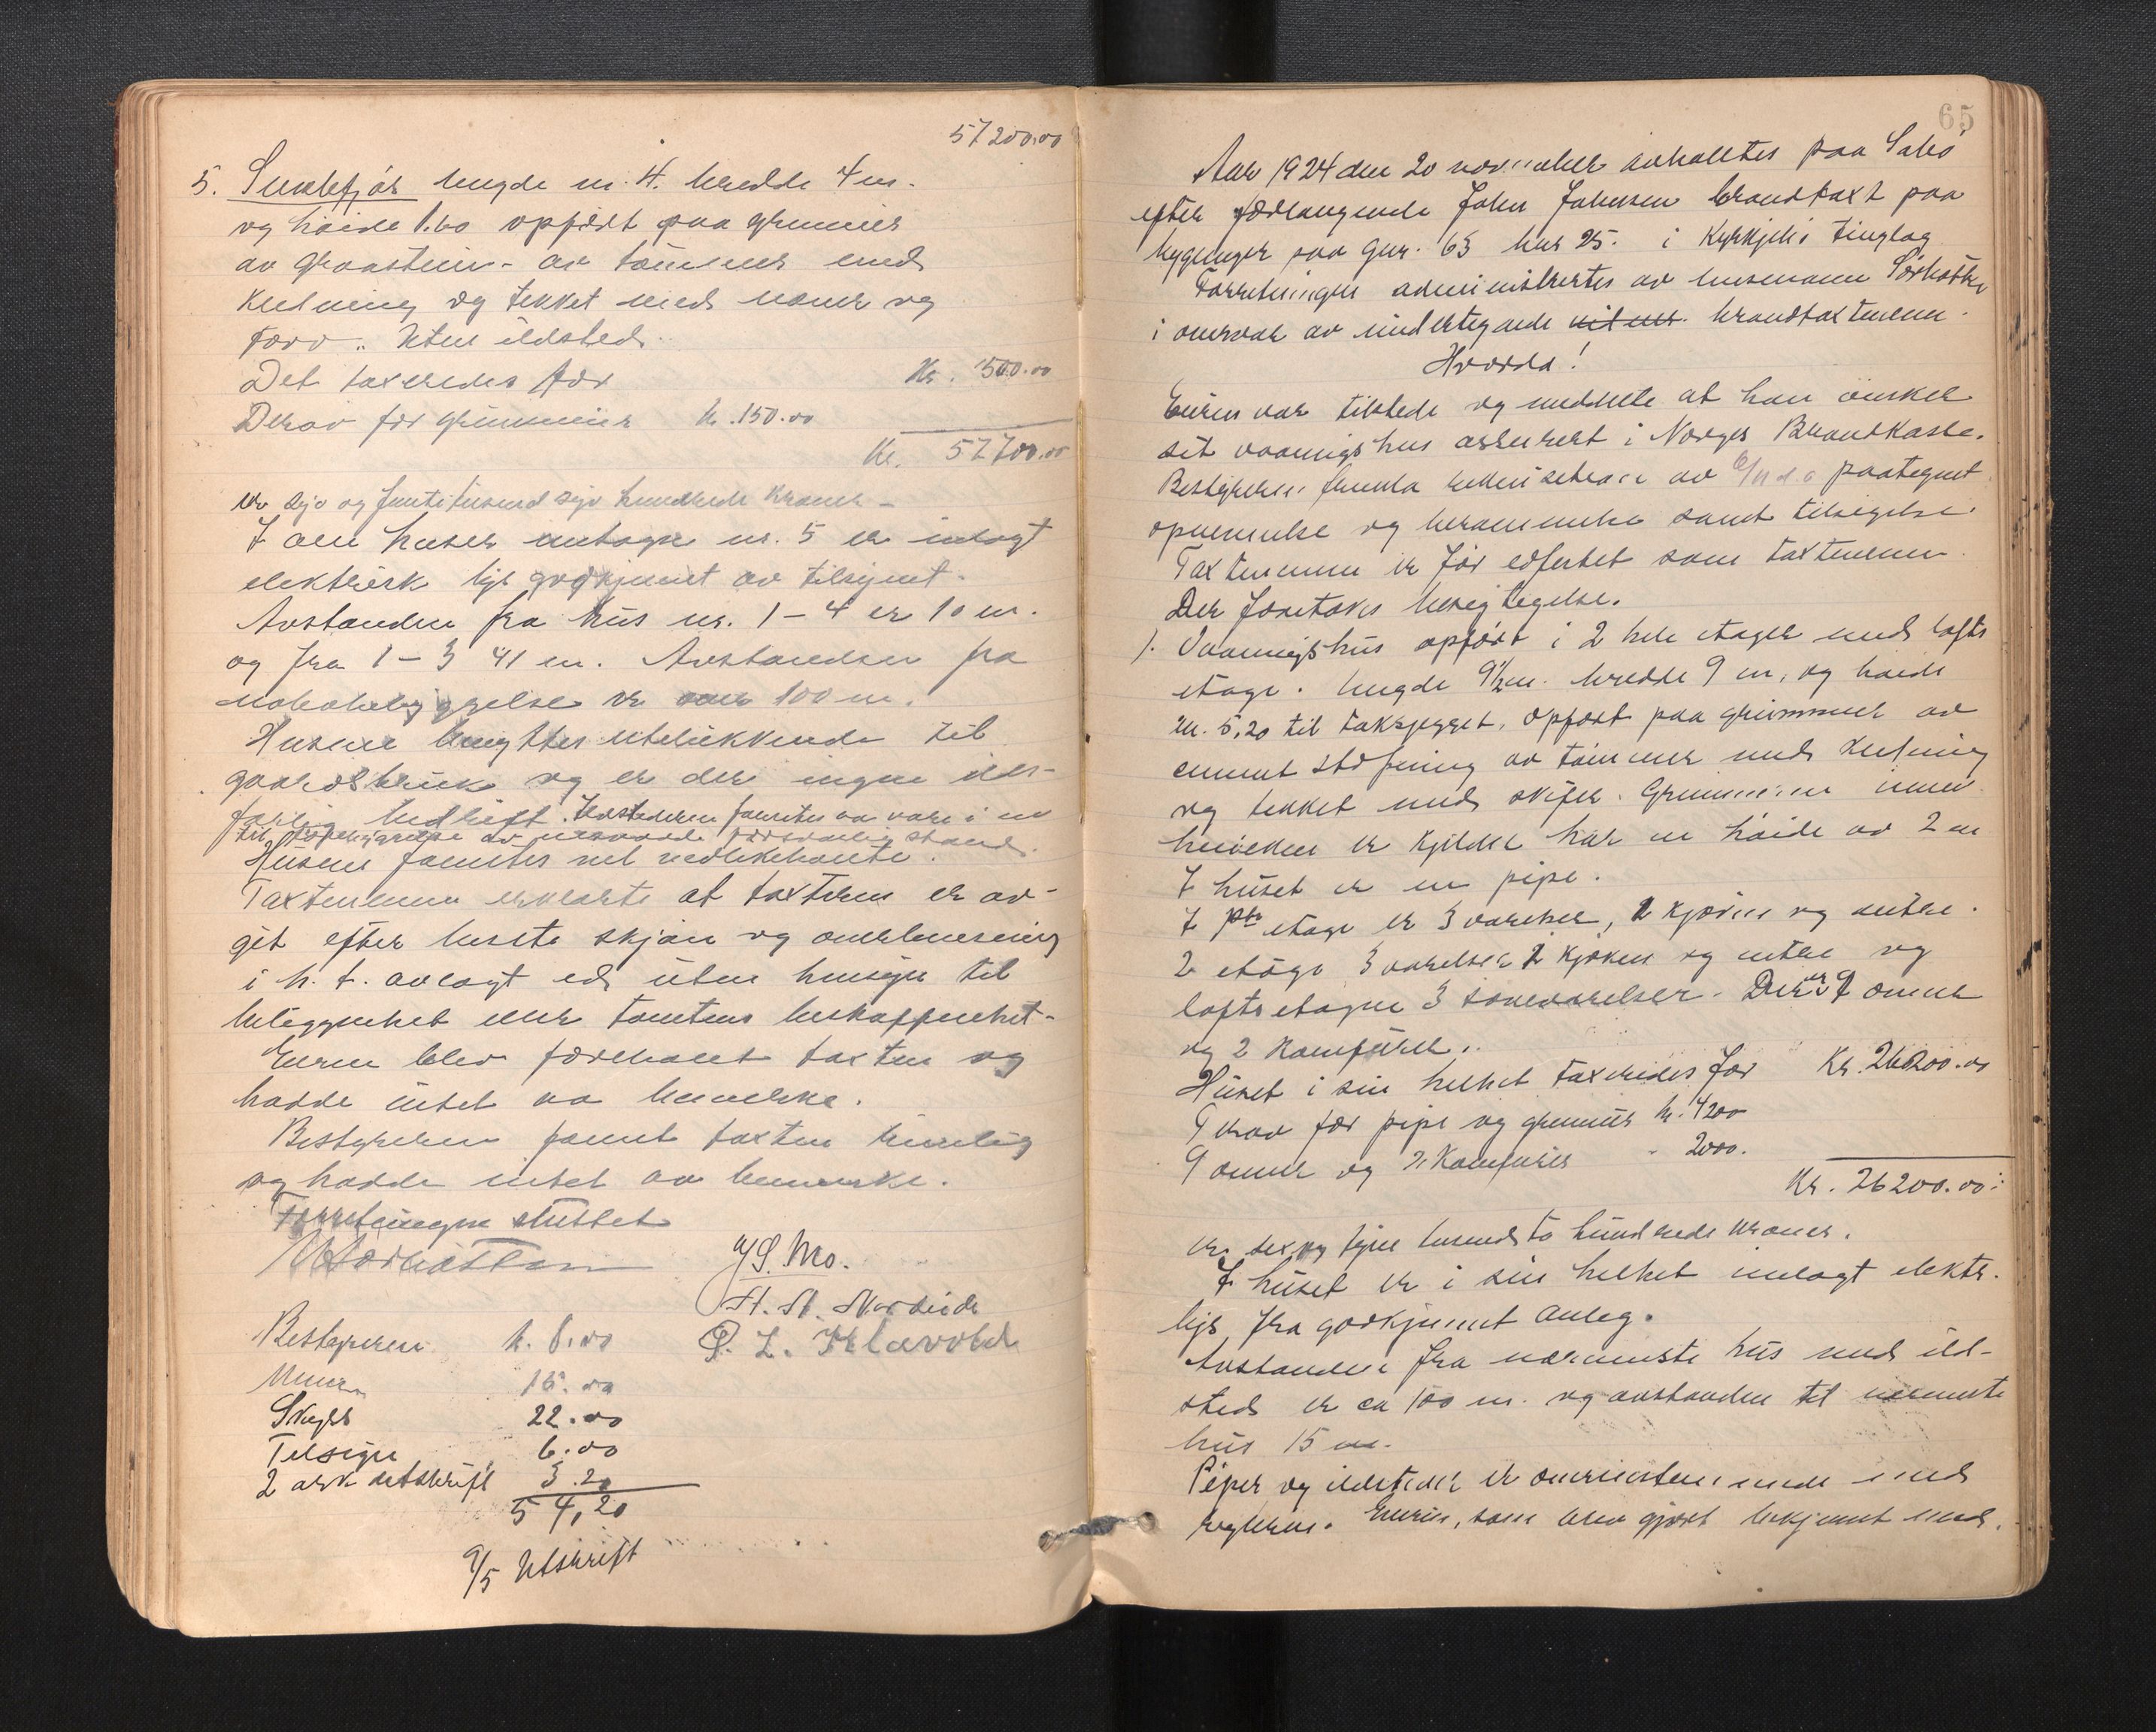 57200.00
5. lengde m. 4. bredde 4 m.
og høide 1.60 opført paa grunmur
av graastein - av tømmer med
Kledning og tekket med never og
Torv. Uten ildsted.
Det taxeredes for Kr. 500.00
Derav for grunmur kr. 150.00
Kr. 57700.00
er syv og femti tusend syv hundrede kroner -
I alle huser undtagen nr. 5 er inlagt
elektrisk lys godkjennt av tilsynet.
Avstanden fra hus nr. 1 - 4 er 10 m.
og fra 1 - 3 41 m. Avstanden fra
nabobebyggelse er over 100 m.
Husene benyttes utelukkende til
gaardsbruk og er der ingen ild-
farlig bedrift. Ildstederne fantes aa være i en
til forsvarlig stand.
Husene fantes vel vedlikeholdte.
Taxtmenna erklærte at taxten er av-
git efter beste skjøn og overbevisning
i h. t. avlagt ed uten hensyn til
beliggenhet eller tomtens beskaffenhet -
Eieren blev foreholdt taxten og
hadde intet aa bemerke.
Bestyreren fannt taxten rimelig
og hadde intet aa bemerke.
Forretningen sluttet
M Sørbotten J. S. Mo.
A. A. Nordeide
P. L. Klævold
Bestyreren kr. 8.00
Menn 15.00
Skyds 22.00
Tilsign 6.00
2 ark utskrift 3.20
54,20
9/5 Utskrift
65
Aar 1924 den 20 november avholdtes paa Sæbø
efter forlangende John Johnsen brandtaxt paa
bygninger paa gnr. 63 bnr 25. i Kyrkjebø tinglag
Forretningen administrertes av lensmann Sørbotten
i overvær av undertegnede vitner. brandtaxtmenn.
Hvorda!
Eieren var tilstede og meddelte at han ønsker
sit vaanigshus assurert i Norges Brandkasse.
Bestyreren fremla rekvisition av 6/11 d.a. paategnet
opnevnelse og berammelse samt tilsigelse.
Taxtmennen er før edfestet som taxtmenn.
Der foretokes besigtegelse.
1. Vaanigshus opført i 2 hele etager med lofts
etage. lengde 9½ m. bredde 9 m, og høide
m. 5,20 til takskjegget, opført paa grunnmur av
cement støpning av tømmer med kledning
og tekket med skifer. Grunmuren innen
hvilken er kjelder har en høide av 2 m
I huset er en pipe.
I 1ste etage er 3 værelser, 1 kjøken og entre.
2 etage 3 værelser 1 kjøken og entre og
loftsetagen 3 soveværelser. Der er 9 ovner
og 2 Komfurer.
Huset i sin helhet taxeredes for Kr. 26200.00
Derav for pipe og grunmur kr. 4200
9 ovner og 2 Komfurer - 2000.
Kr. 26200.00:
er sex og tyve tusend to hundrede kroner.
I huset er i sin helhet inlagt elektr.
lys fra godkjennt anleg.
Avstanden fra nærmeste hus med ild-
sted er ca 100 m. og avstanden til nærmeste
hus 15 m.
Piper og ildsteder er overensstemmende med
reglerne. Eieren, som blev gjort bekjennt med